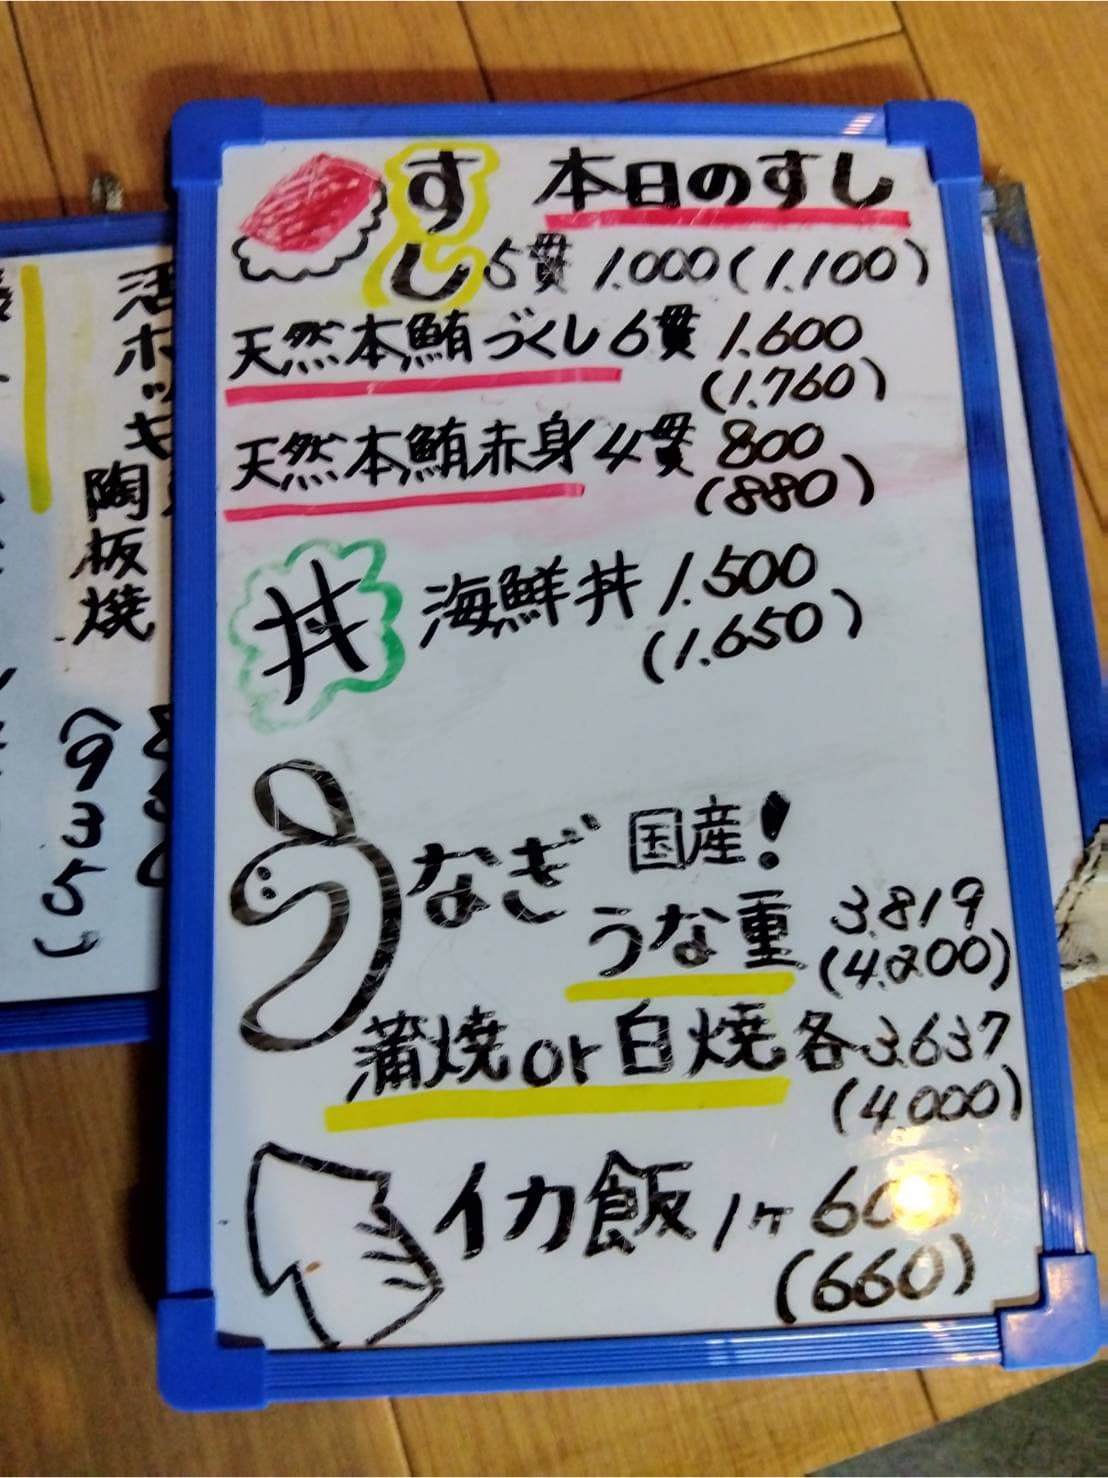 すし 本日のすし
5貫 1.000(1.100)
天然本鮪づくし6貫 1.600
(1.760)
天然本鮪赤身4貫 800
(880)
丼 海鮮丼 1.500
(1.650)
うなぎ 国産!
うな重 3.819
(4.200)
蒲焼or白焼 各3.637
(4.000)
イカ飯 1ヶ 600
(660)
活ホッキ
陶板焼
(935)